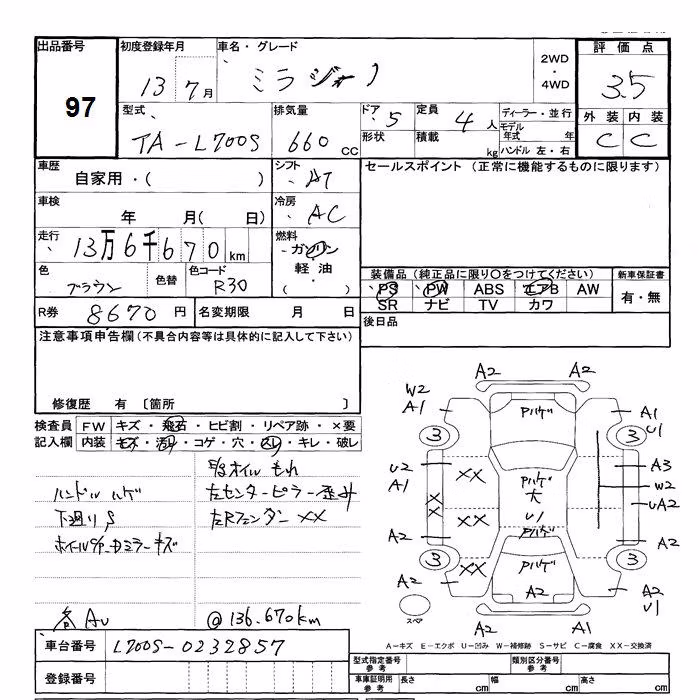 出品番号 初度登録年月 車名・グレード 2WD・4WD 評価点
97 13 7月 ミラジーノ 3.5
型式 排気量 ドア 5 定員 4人 ディーラー・並行 外装 内装
TA-L700S 660cc 形状 積載 kg モデル年式 年 C C
ハンドル 左・右
車歴 自家用・( ) シフト AT セールスポイント (正常に機能するものに限ります)
車検 年 月( 日) 冷房 AC
走行 13万6千670km 燃料 ガソリン
軽油・( )
色 ブラウン 色替 色コード R30 装備品 (純正品に限り○をつけてください) 新車保証書
PS PW ABS エアB AW 有・無
SR ナビ TV カワ
R券 8670円 名変期限 月 日 後日品
注意事項申告欄(不具合内容等は具体的に記入して下さい)
修復歴 有 〔箇所 〕
検査員 FW キズ・飛石・ヒビ割・リペア跡・×要
記入欄 内装 キズ・汚れ・コゲ・穴・スレ・キレ・破レ
オイルもれ
ハンドルハゲ 左センターピラー歪み
下廻りS 左RフェンダーXX
ミラーキズ
各AU @136.670km
車台番号 L700S-0232857
登録番号
A2 A2
W2 A1 Pハゲ A1 U1
3 3
U2 A1 XX Pハゲ 大 U1 A3 W2 UA2
XX XX
A2 Pハゲ A2
3 XX Pハゲ 3
A2 A2 A2 U1
スペア A2 A1
A-キズ E-エクボ U-凹み W-補修跡 S-サビ C-腐食 XX-交換済
型式指定番号 参考 類別区分番号 参考
車庫証明用 参考 長さ cm 幅 cm 高さ cm